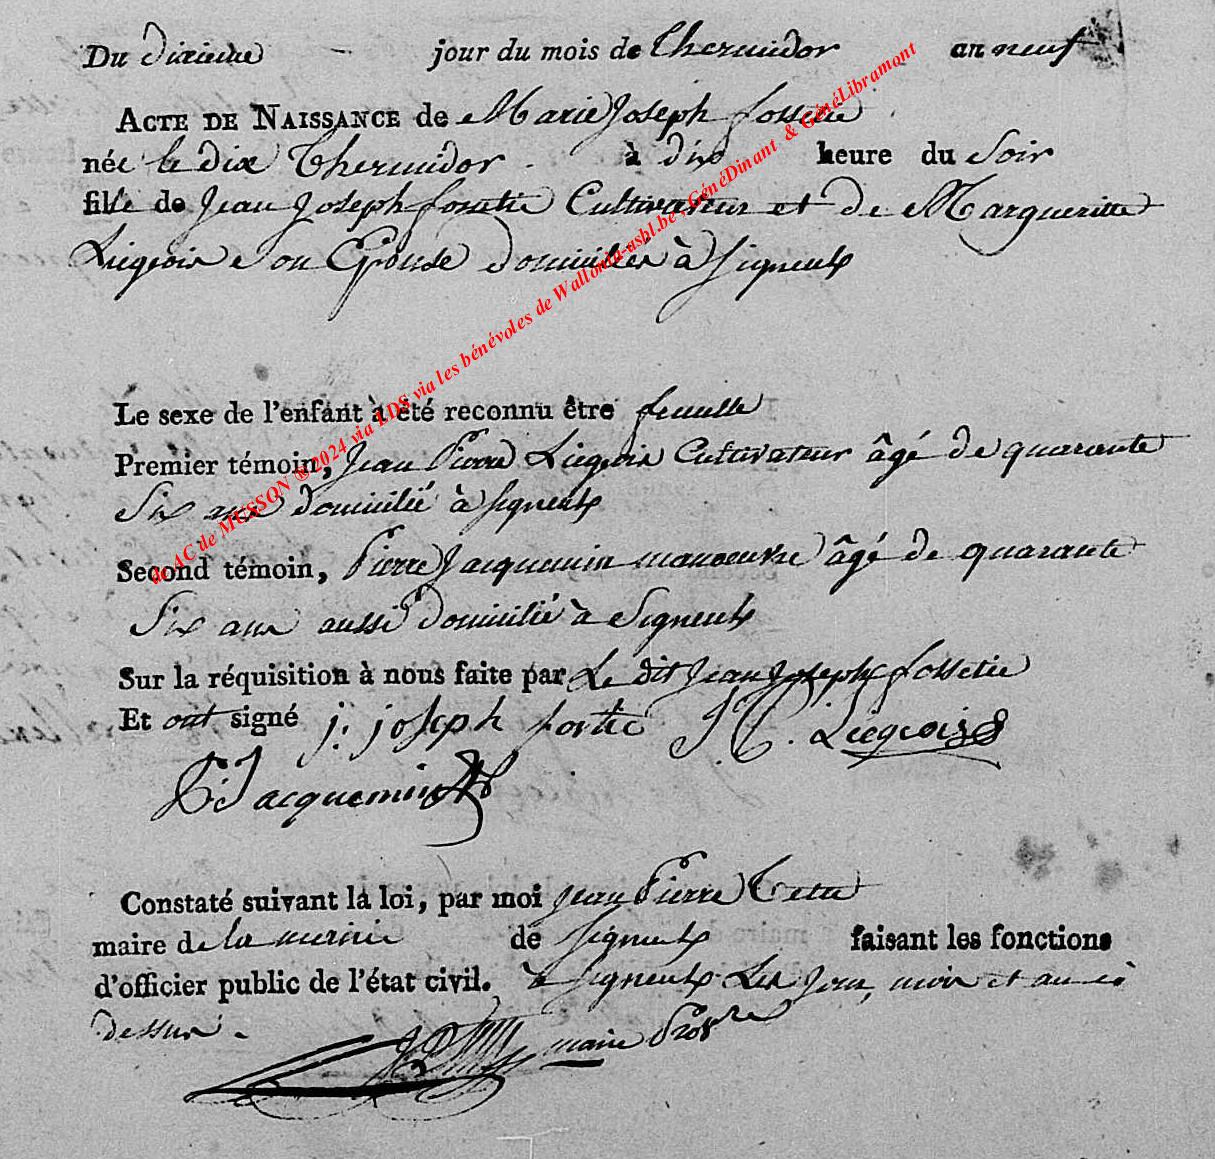 Du dixieme jour du mois de Thermidor an neuf
ACTE DE NAISSANCE de Marie Joseph fossetie
née le dix Thermidor à dix heure du Soir
fille de Jean Joseph fossetie Cultivateur et de Margueritte
Liegeois son Epouse domiciliés à Signeulx
Le sexe de l'enfant à été reconnu être femelle
Premier témoin, Jean Pierre Liegeois Cultivateur âgé de quarante
Six ans domicilié à Signeulx
Second témoin, Pierre Jacquemin manoeuvre âgé de quarante
Six ans aussi domicilié à Signeulx
Sur la réquisition à nous faite par Le dit Jean Joseph fossetie
Et ont signé j. joseph fortie J P. Liegeois
P. Jacquemin
Constaté suivant la loi, par moi Jean Pierre
maire de la mairie de Signeulx faisant les fonctions
d'officier public de l'état civil. à Signeulx Les Jour, mois et an ci
dessus.
maire Prov.re
de AC de MUSSON ® 2024 via LDS via les bénévoles de Wallonia-asbl.be, GénéDinant & GénéLibramont